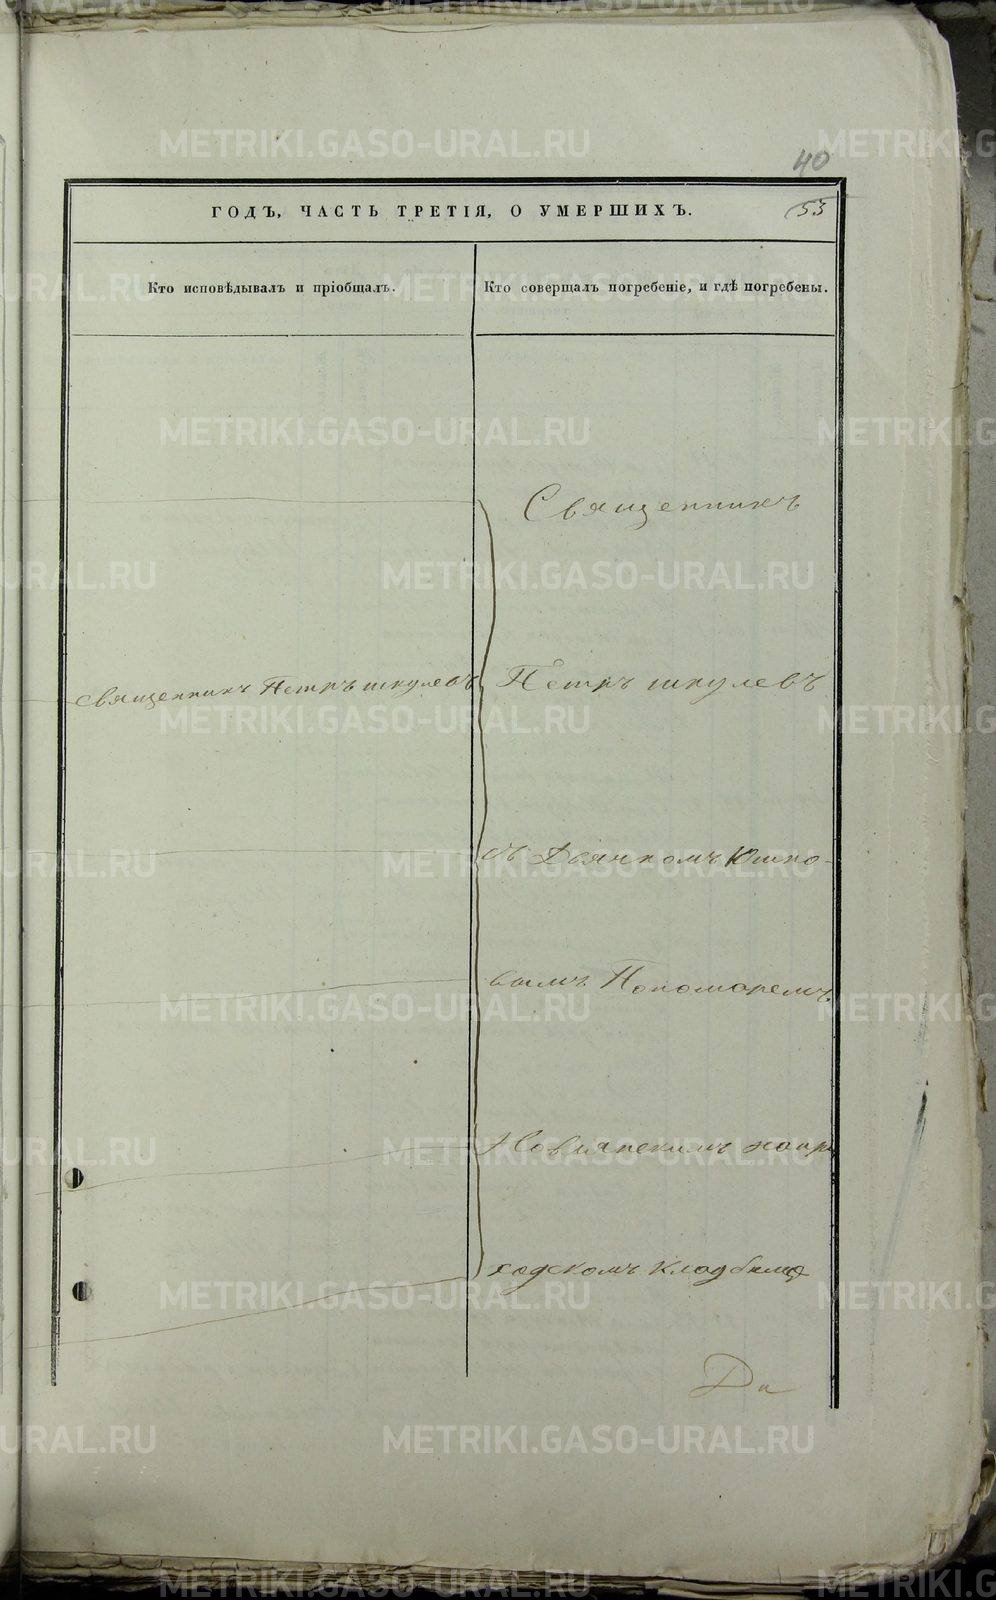 40
53
ГОДЪ, ЧАСТЬ ТРЕТІЯ, О УМЕРШИХЪ.
Кто исповѣдывалъ и пріобщалъ.
Кто совершалъ погребеніе, и гдѣ погребены.
Священникъ Петръ шкулевъ
Священникъ
Петръ шкулевъ
съ Дьячкомъ Юшко-
вымъ Пономаремъ
на при
ходскомъ кладбищѣ
METRIKI.GASO-URAL.RU